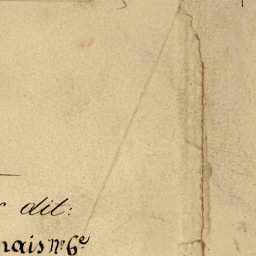 dit:
nais Nº 6e